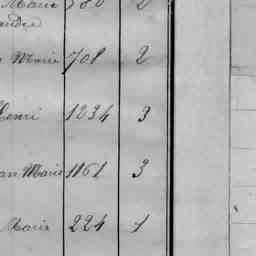 Marie 780 2
Marie 708 2
Henri 1234 3
an Marie 1161 3
Marie 224 1